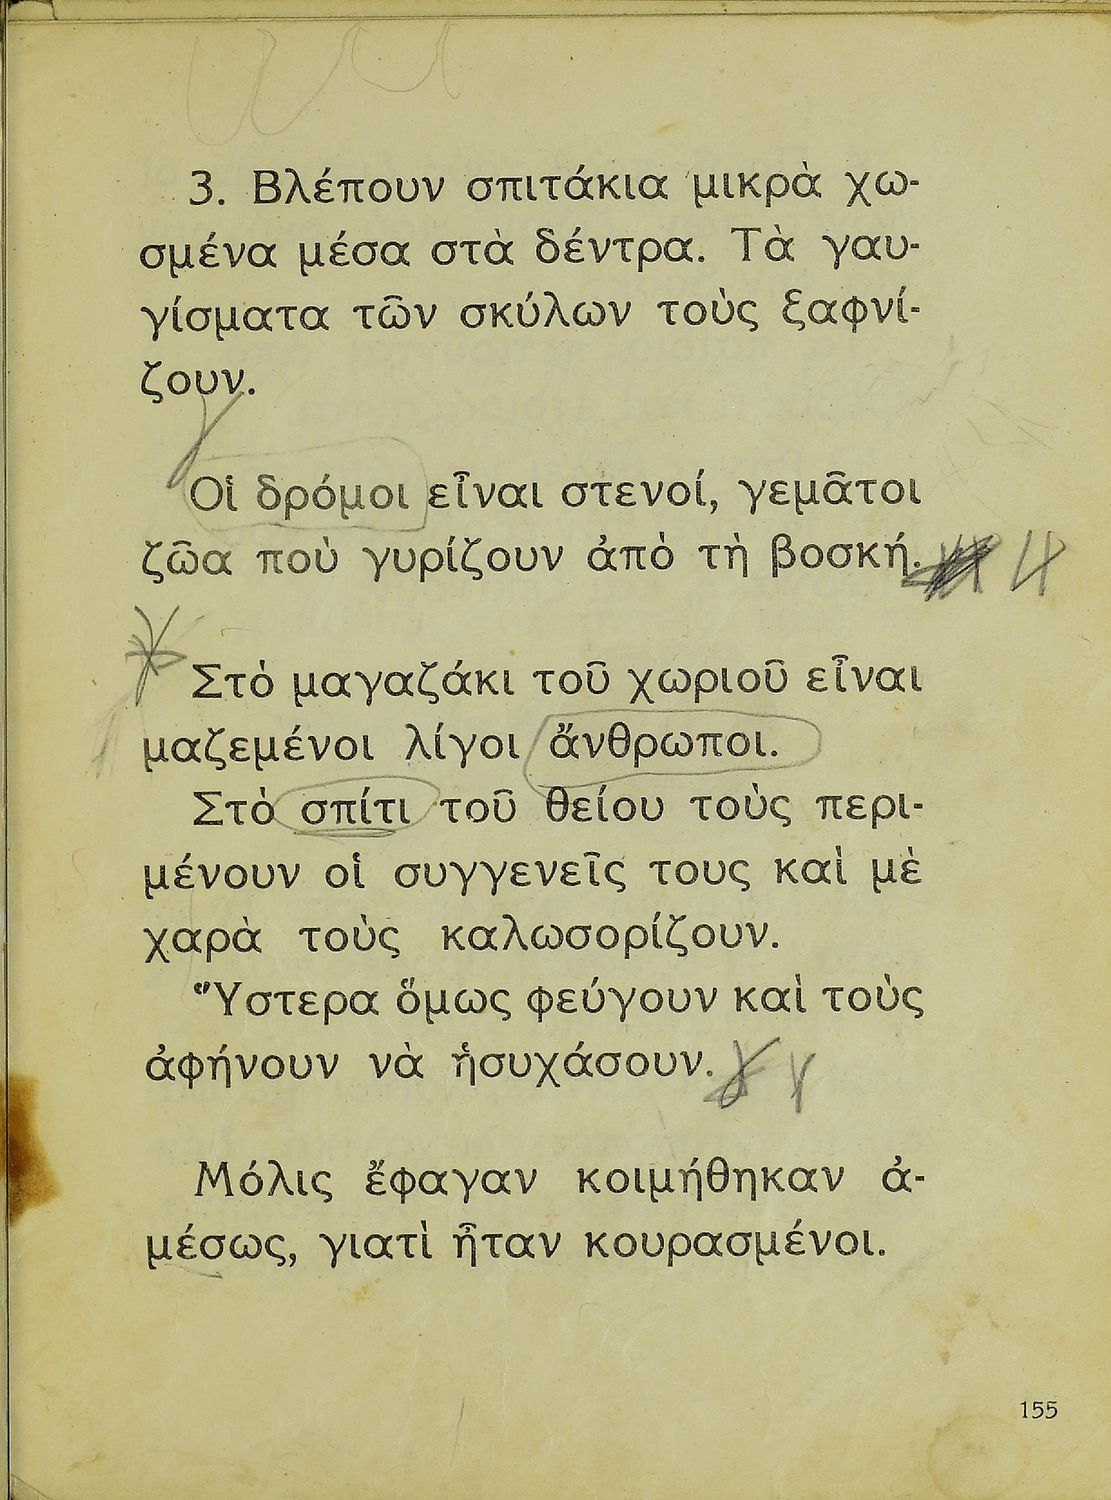 3. Βλέπουν σπιτάκια μικρὰ χω-
σμένα μέσα στὰ δέντρα. Τὰ γαυ-
γίσματα τῶν σκύλων τοὺς ξαφνί-
ζουν.
Οἱ δρόμοι εἶναι στενοί, γεμᾶτοι
ζῶα ποὺ γυρίζουν ἀπὸ τὴ βοσκή.
Στὸ μαγαζάκι τοῦ χωριοῦ εἶναι
μαζεμένοι λίγοι ἄνθρωποι.
Στὸ σπίτι τοῦ θείου τοὺς περι-
μένουν οἱ συγγενεῖς τους καὶ μὲ
χαρὰ τοὺς καλωσορίζουν.
Ὕστερα ὅμως φεύγουν καὶ τοὺς
ἀφήνουν νὰ ἡσυχάσουν.
Μόλις ἔφαγαν κοιμήθηκαν ἀ-
μέσως, γιατὶ ἦταν κουρασμένοι.
155